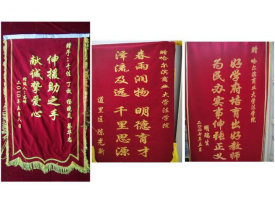 伸援助之手
献诚挚爱心
赠哈尔滨商业大学法学院
春雨润物 明德育才
泽流及远 千里思源
道里区 陈光新
赠哈尔滨商业大学法学院
好学府培育出好教师
为民办实事伸张正义